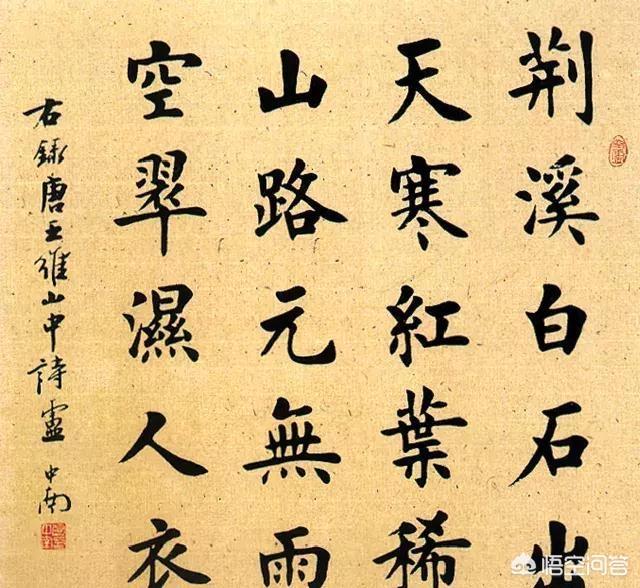 荆溪白石出
天寒紅葉稀
山路元無雨
空翠濕人衣
右録唐王維山中詩盧中南
悟空问答